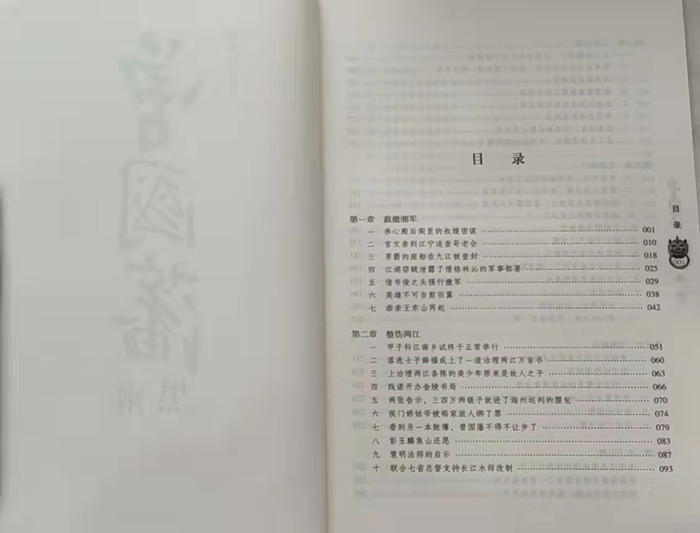 曾國藩
黑雨
目 录
第一章 裁撤湘军
一 养心殿后阁里的叔嫂密谋 001
二 官文亲到江宁追查哥老会 010
三 男爵的座船在九江被查封 018
四 江湖窃贼泄露了僧格林沁的军事部署 025
五 借韦俊之头强行撤军 029
六 英雄不可自剪羽翼 038
七 恭亲王东山再起 042
第二章 整饬两江
一 甲子科江南乡试终于正常举行 051
二 落选士子薛福成上了一道治理两江万言书 060
三 上治理两江条陈的美少年原来是故人之子 063
四 践诺开办金陵书局 066
五 两张告示，三四万两银子就进了海州运判的腰包 070
六 侯门娇姑爷被裕家派人绑了票 074
七 看到另一本账簿，曾国藩不得不让步了 079
八 彭玉麟焦山还愿 083
九 慧明法师的启示 087
十 联合七省总督支持长江水师改制 093
目录
001